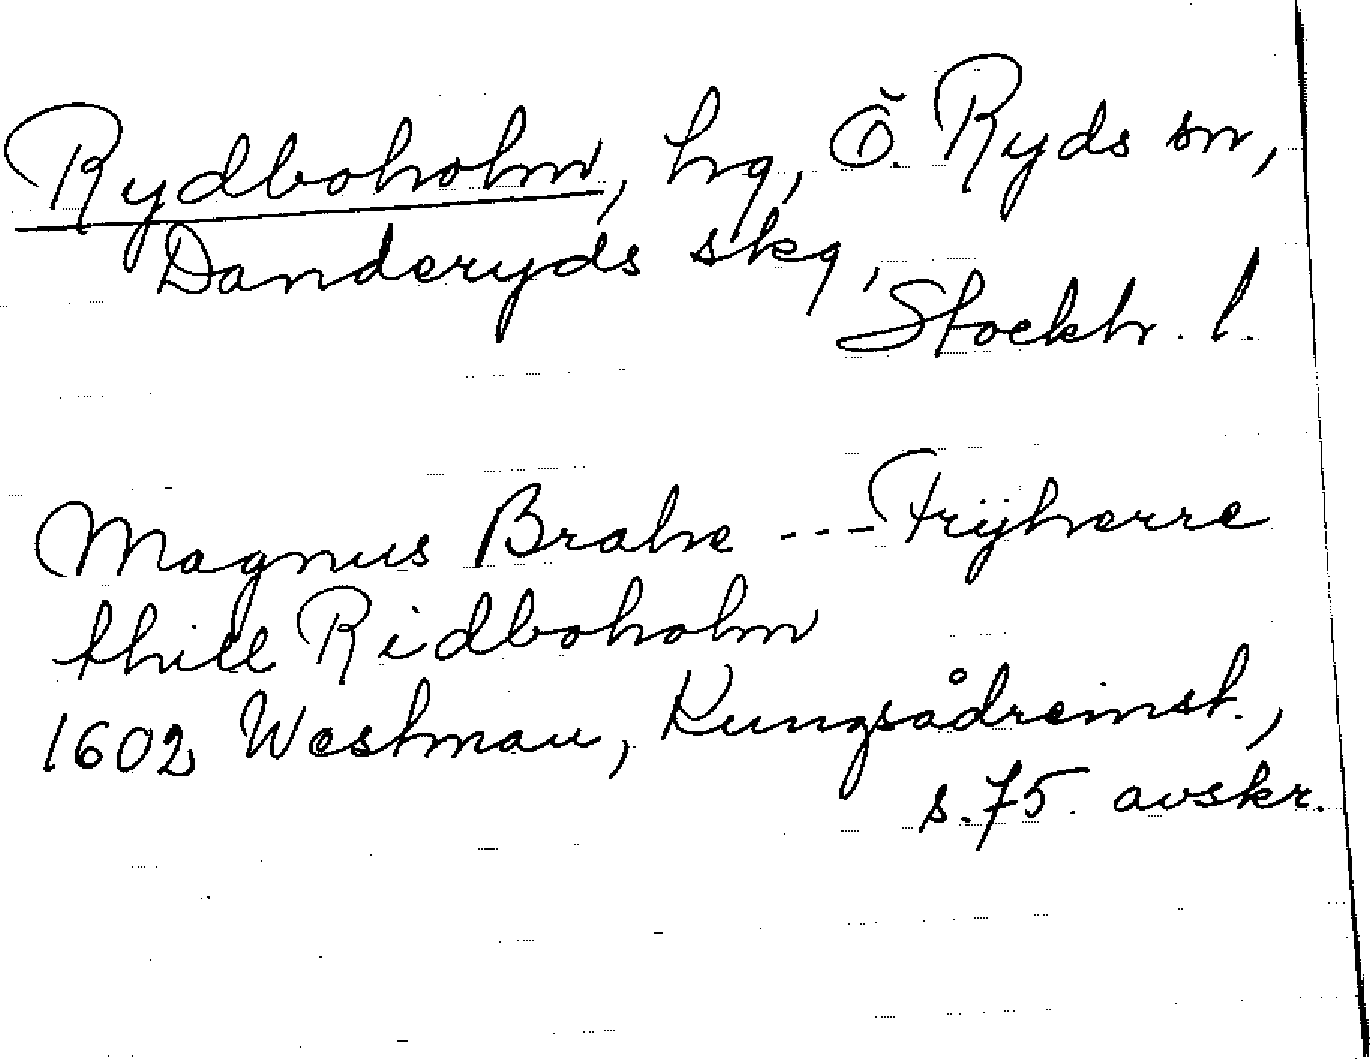 Rydboholm, hg, Ö. Ryds sn,
Danderyds skg,
Stockh. l.
Magnus Brahe --- Frijherre
thill Ridboholm
1602 Westman, Kungsådreinst.,
s. 75. avskr.